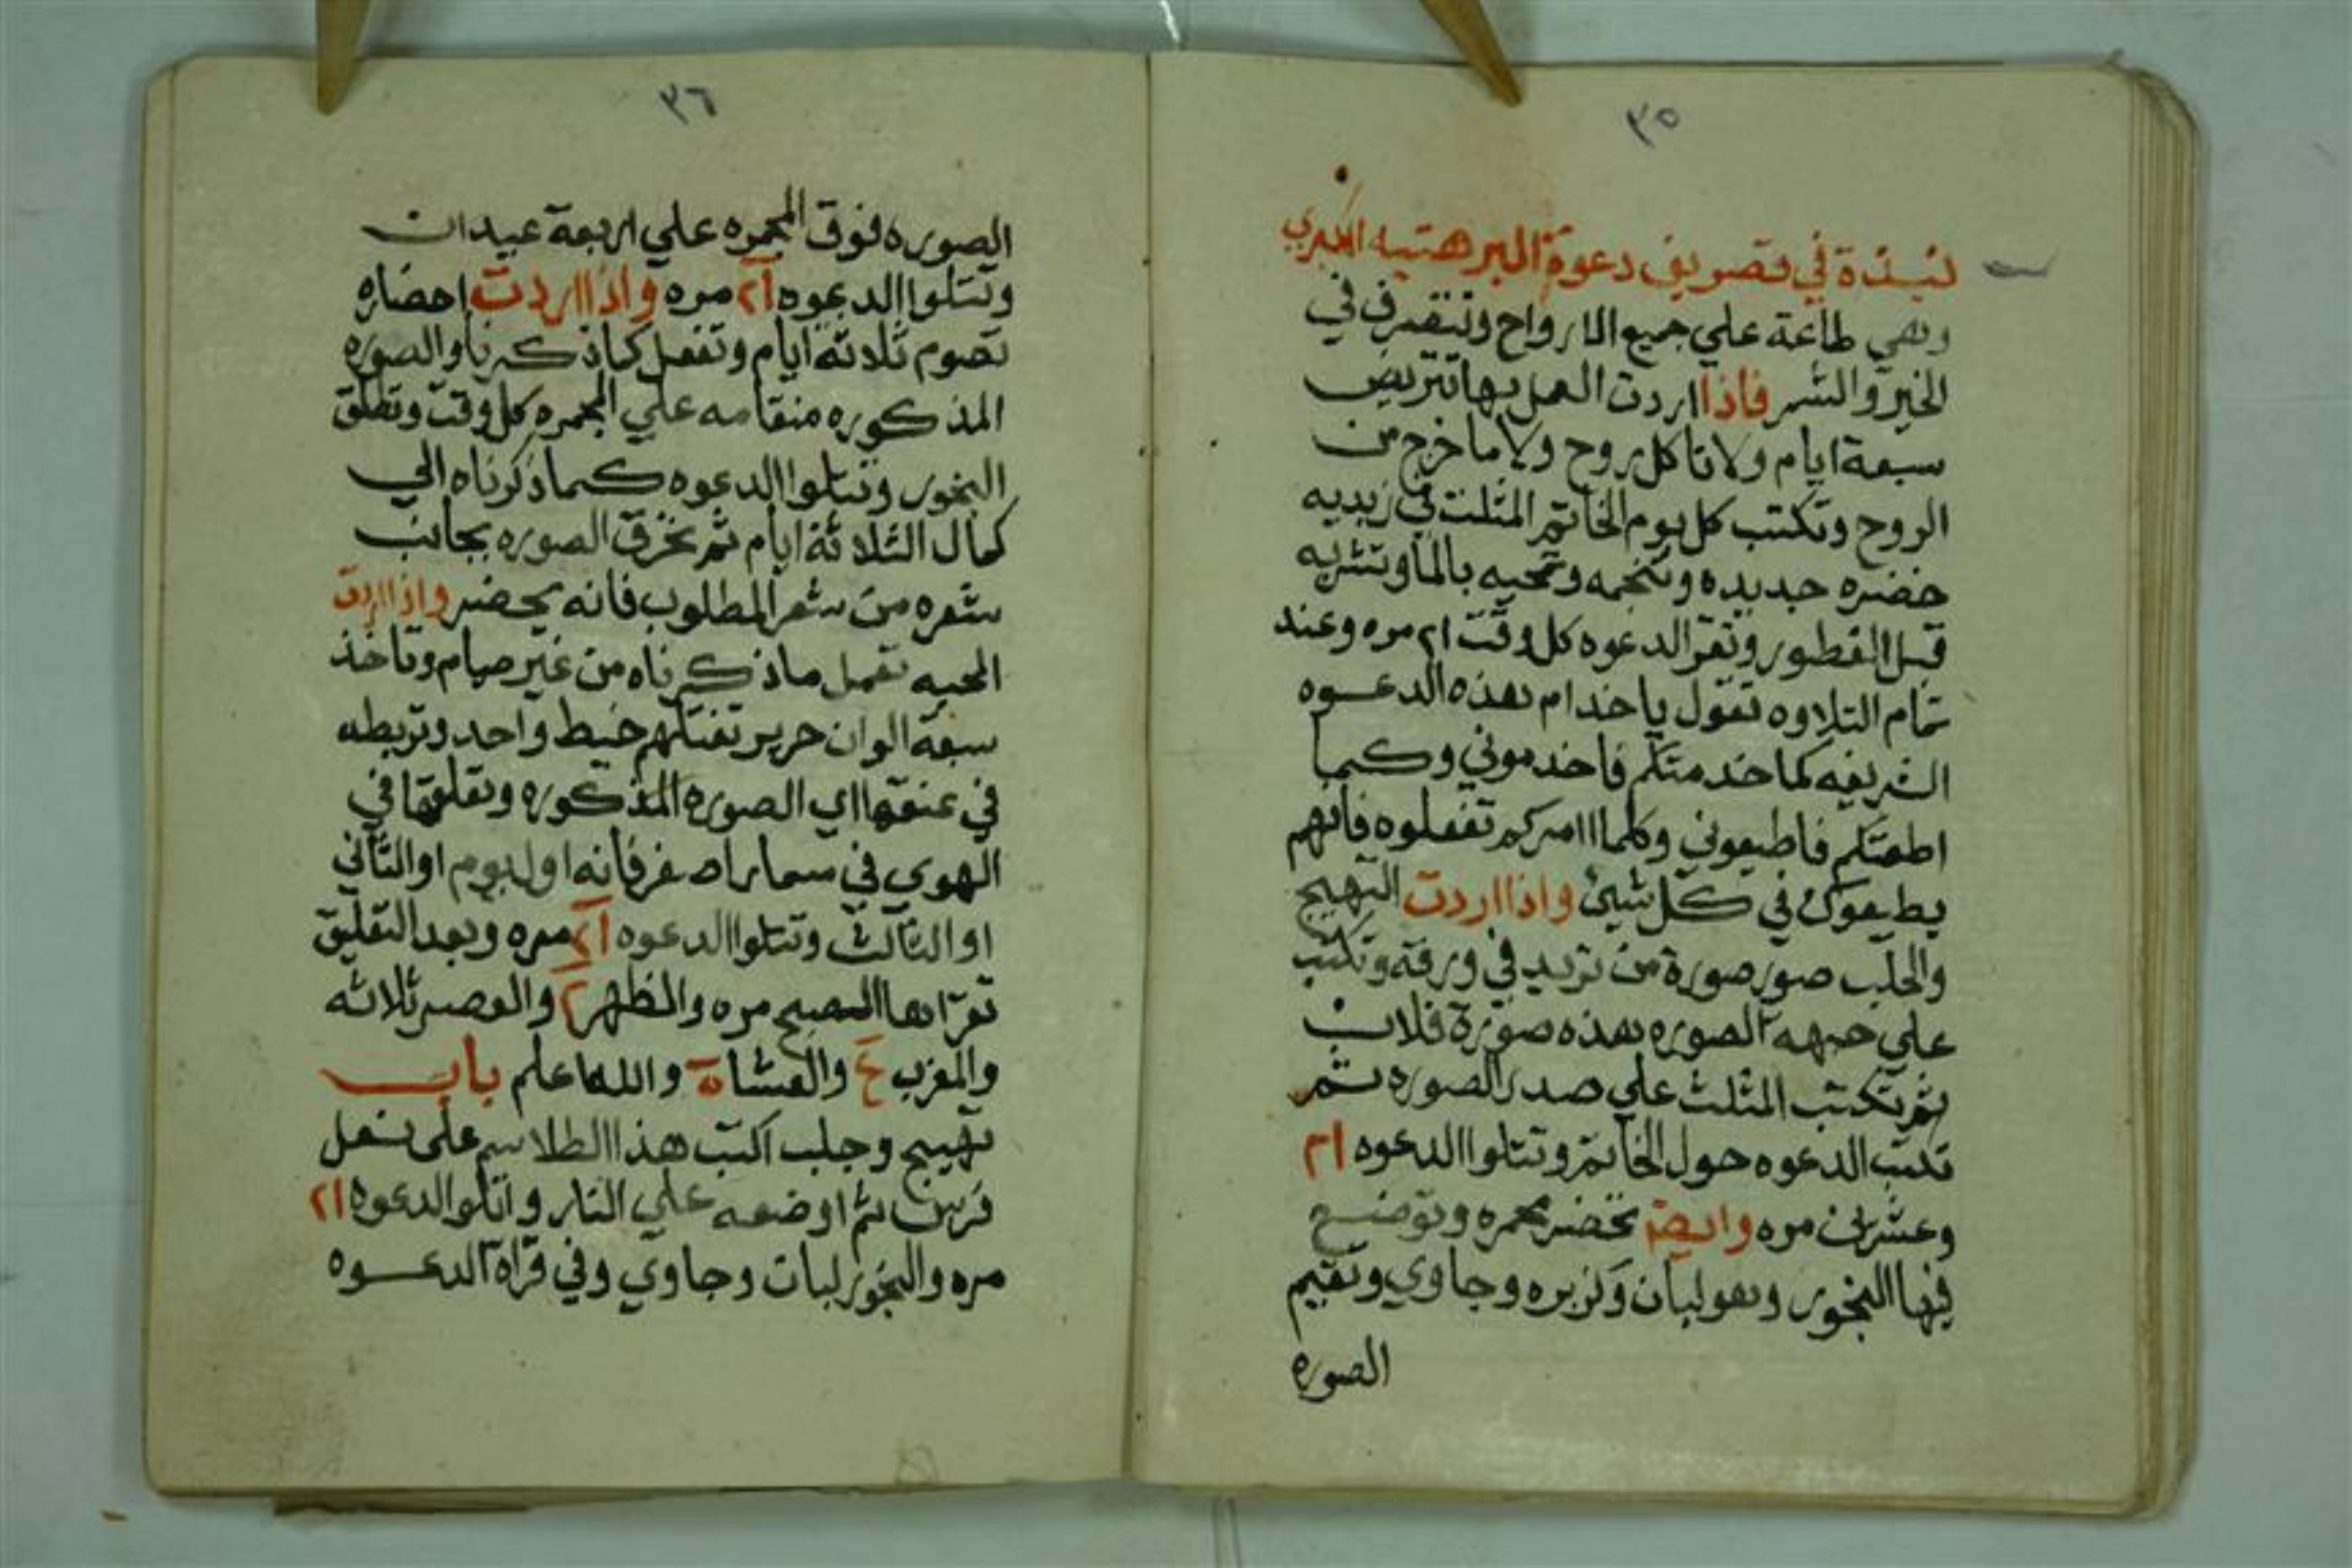 ٣٥
نبذة في تصريف دعوة البرهتيه الكبري
وهي طاعة علي جميع الارواح وتتصرف في
الخير والشر فاذا اردت العمل بها تتريض
سبعة ايام ولا تاكل روح ولا ما خرج من
الروح وتكتب كل يوم الخاتم المثلث في زبديه
خضره جديده وتنجمه وتمحيه بالما وتشربه
قبل الفطور وتقر الدعوه كل وقت ٢١ مره وعند
تمام التلاوه تقول ياخدام هذه الدعوه
الشريفه كما خدمتكم فاخدموني وكما
اطعتكم فاطيعوني وكلما امركم تفعلوه فانهم
يطيعوك في كل شيئ واذا اردت التهيج
والجلب صور صورة من تريد في ورقه وتكتب
علي جبهه الصوره هذه صورة فلان
ثم تكتب المثلث علي صدر الصوره ثم
تكتب الدعوه حول الخاتم وتتلوا الدعوه ام
وعشرين مره وايضا تحضر مجمره وتوضع
فيها البخور وهو لبان وكزبره وجاوي وتقيم
الصوره
٣٦
الصوره فوق المجمره علي اربعة عيدان
وتتلوا الدعوه ٢١ مره واذا اردت احضاره
تصوم ثلاثة ايام وتفعل كما ذكرنا والصوره
المذكوره منقامه علي المجمره كل وقت وتطلق
البخور وتتلوا الدعوه كما ذكرناه الي
كمال الثلاثة ايام ثم تحرق الصوره بجانب
شعره من شعر المطلوب فانه يحضر واذا اردت
المحبه تعمل ما ذكرناه من غير صيام وتاخذ
سبعة الوان حرير تفتلهم خيط واحد وتربطه
في عنقها اي الصوره المذكوره وتعلقها في
الهوي في اول يوم او الثاني
او الثالث وتتلوا الدعوه ٢١ مره وبعد التعليق
تقراها الصبح مره والظهر ٢ والعصر ثلاثه
والمغرب ع والعشا ه والله اعلم باب
تهييج وجلب اكتب هذا الطلاسم على نعل
فرس ثم اوضعه علي النار واتلو الدعوه ٢١
مره والبخور لبان وجاوي وفي قراة الدعوه